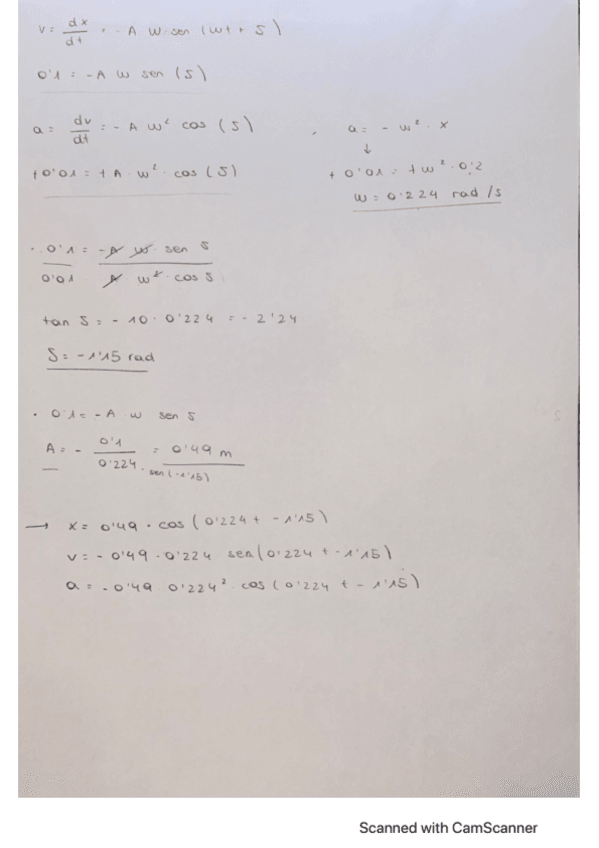 v = dx/dt = - A w · sen (wt + δ)
0'1 = - A w sen (δ)
a = dv/dt = - A w² cos (δ)
+0'01 = + A · w² · cos (δ)
a = - w² · x
↓
+ 0'01 = + w² · 0'2
w = 0'224 rad/s
· 0'1 / 0'01 = - A w · sen δ / A w² · cos δ
tan δ = - 10 · 0'224 = - 2'24
δ = - 1'15 rad
· 0'1 = - A · w sen δ
A = - 0'1 / 0'224 · sen (-1'15) = 0'49 m
→ x = 0'49 · cos (0'224 t - 1'15)
v = - 0'49 · 0'224 sen (0'224 t - 1'15)
a = - 0'49 0'224² · cos (0'224 t - 1'15)
Scanned with CamScanner